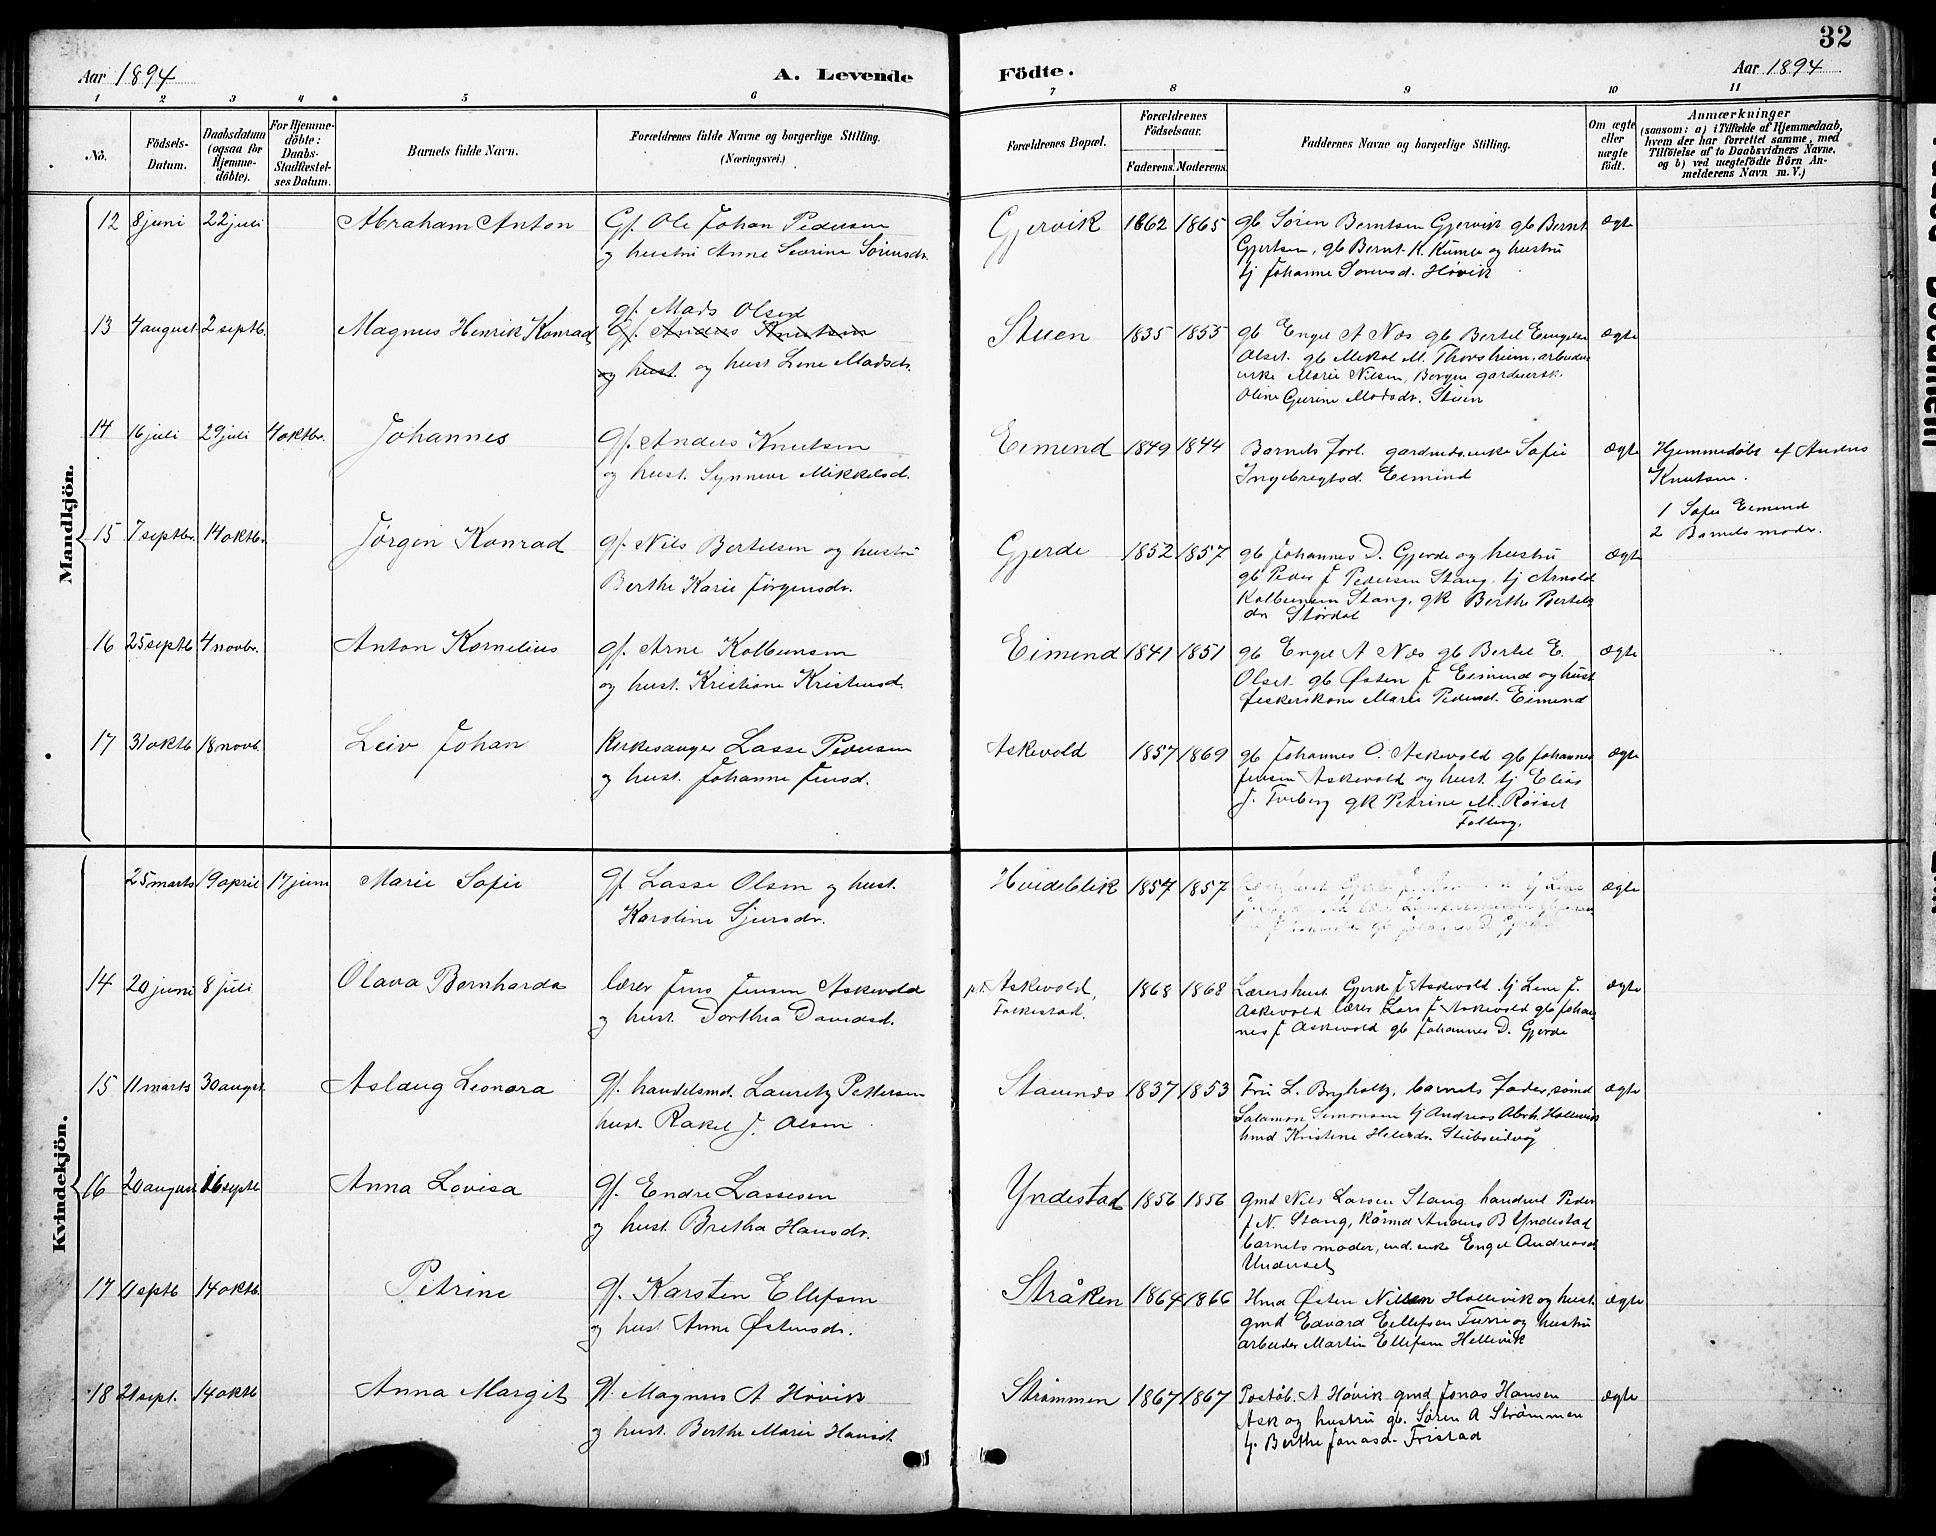 32
Aar 1894
A. Levende
Födte.
Aar 1894
1 2 3 4 5 6 7 8 9 10 11
No.
Födsels-
Datum.
Daabsdatum
(ogsaa for
Hjemme-
döbte).
For Hjemme-
döbte:
Daabs-
Stadfæstel-
ses Datum.
Barnets fulde Navn.
Forældrenes fulde Navne og borgerlige Stilling.
(Næringsvei.)
Forældrenes Bopæl.
Forældrenes
Födselsaar.
Faderens. Moderens.
Faddernes Navne og borgerlige Stilling.
Om ægte
eller
uægte
födt.
Anmærkninger
(saasom: a) i Tilfælde af Hjemmedaab,
hvem der har forrettet samme, med
Tilföielse af to Daabsvidners Navne,
og b) ved uægtefödte Börn An-
melderens Navn m. V.)
Mandkjön.
12 8 juni 22 juli Abraham Anton Gf. Ole Johan Pedersen
og hustru Anne Severine Sörensdr.
Gjervik 1862 1865 gb Sören Berntsen Gjervik gb Bernt ægte
Gjertsen, gb Bernt K. Kumle og hustru
tj Johanne Sorensd. Hövik
13 4 august 2 septb. Magnus Henrik Konrad gf. Mads Olsen
Gf. Anders Knutsen
og hust. og hust Lene Madsdr.
Stuen 1835 1855 gb Engel A Næs gb Bertel Engels ægte
Olset. gb Mikal M. Thorsheim, arbeider
enke Marie Nilsen, Bergen gardmersk.
Oline Gurine Madsdr. Stuen
14 16 juli 29 juli 4 oktbr. Johannes Gf. Anders Knutsen
og hust. Synneve Mikkelsd.
Eimend 1849 1844 Barnets forl. gardmds.enke Sofie ægte
Ingebregtsd. Eimind
Hjemmedöbt af Anders
Knutsen.
1 Sofie Eimend
2 Barnets moder.
15 7 septbr. 14 oktb. Jörgen Konrad gf. Nils Bertelsen og hustru
Berthe Karie Jörgensdr.
Gjerde 1852 1857 gb Johannes D. Gjerde og hustru ægte
gb Peder J Pedersen Stang, tj Arnold
Kolbensen Stang, gk Berthe Bertels
dr Stördal
16 25 septb 4 novbr. Anton Kornelius gf. Arne Kolbensen
og hust. Kristiane Kristensd.
Eimend 1841 1851 gb Engel A Næs gb Bertel E. ægte
Olset. gb Østen J Eimend og hust
fiskerskone Marie Pedersd. Eimend
17 31 oktb 18 novb. Leiv Johan Kirkesanger Lasse Pedersen
og hust. Johanne Jensd.
Askevold 1857 1869 gb Johannes O. Askevold gb Johannes ægte
Jensen Askevold og hust. tj Elias
J. gk Petrine M. Röiset
Kvindekjön.
25 marts 19 april 17 juni Marie Sofie Gf Lasse Olsen og hust.
Karoline Sjursdr.
Hvideblik 1857 1857 ægte
14 20 juni 8 juli Olava Bernharda lærer Jens Jensen Askevold
og hust. Dorthea Davidsd.
p.t. Askevold, 1868 1868 Lærershust Gjerte J Askevold. tj Lene J. ægte
Folkestad.
Askevold lærer Lars J Askevold gb Johan-
nes J Askevold gb Johannes D. Gjerde
15 11 marts 30 august Aslaug Leonora gf. handelsmd. Lauritz Pettersen
hust. Rakel J. Olsen
Stavenes 1837 1853 Fru L. Buyholtz, barnets fader, sömd ægte
Salamon Simonsen tj Andreas Abrh. Hellevik
hmd Kristine Helersdr. Stubseidvåg
16 20 august 16 septb Anna Lovisa Gf. Endre Lassesen
og hust. Bretha Hansdr.
Yndestad 1856 1856 gmd Nils Larsen Stang handrel Peder
J N. Stang, kårmd Anders B Yndestad
barnets moder, ind. enke Engel Andreasd
Underset
17 11 septb 14 oktb. Petrine Gf. Karsten Ellefsen
og hust. Anne Østensdr.
Stråken 1864 1866 Hmd Østen Nilsen Hellevik og hust. ægte
gmd Edvard Eellefsen Furre og hustru
arbeider Martin Ellefsen Hellevik
18 21 sept. 14 oktb Anna Margit Gf. Magnus A Hövik
og hust. Berthe Marie Hansd.
Strömmen 1867 1867 Poståb. A Hövik gmd Jonas Hansen ægte
Ask og hustru gb. Sören A Strömmen
tj. Berthe Jonasd. Fristad